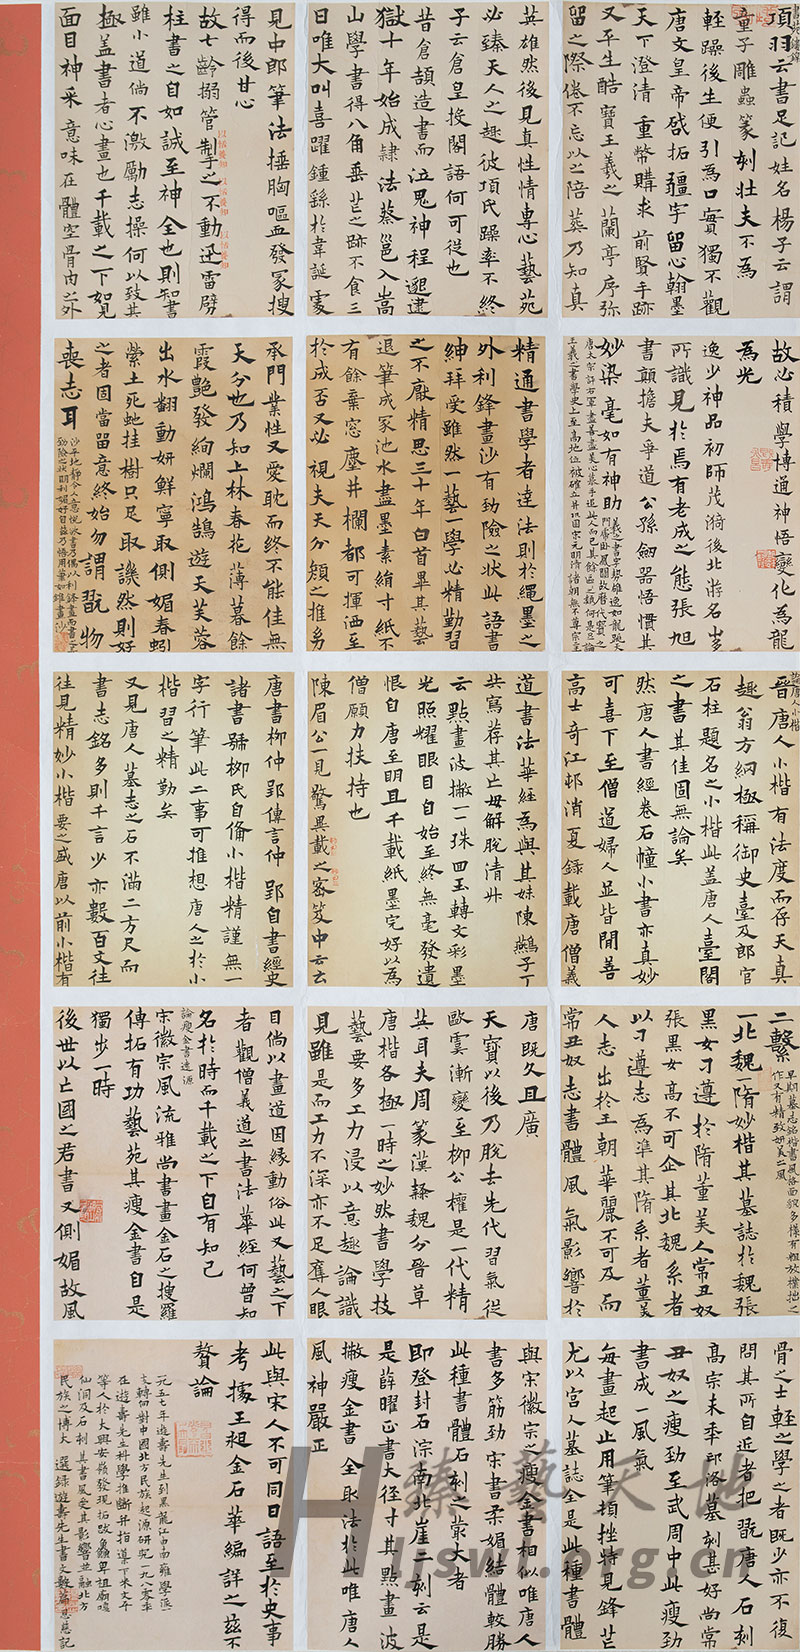 項羽云書足記姓名楊子云謂
童子雕蟲篆刻壯夫不為
輕躁後生便引為口實獨不觀
唐文皇帝啟拓疆宇留心翰墨
天下澄清重幣購求前賢手跡
又平生酷寶王羲之蘭亭序弥
留之際倦不忘以之陪葬乃知真
英雄然後見真性情專心藝苑
必臻天人之趣彼項氏躁率不終
子云倉皇投閣語何可從也
昔倉頡造書而泣鬼神程邈逮
獄十年始成隸法蔡邕入嵩
山學書得八角垂芒之跡不食三
日唯大叫喜躍鍾繇於韋誕冢
見中郎筆法捶胸嘔血發冢搜
得而後甘心
故七齡搦管掣之不動迅雷劈
柱書之自如誠至神全也則知書
雖小道倘不激勵志操何以致其
極蓋書者心畫也千載之下如見
面目神采意味在體空骨肉之外
故必積學博通神悟變化為龍
為光
逸少神品初師茂漪後北游名山多
所識見於焉有老成之態張旭
書顛擔夫爭道公孫劍器悟慣其
妙染毫如有神助
精通書學者達法則於繩墨之
外利鋒畫沙有勁險之狀此語書
紳拜受雖然一藝一學必精勤習
之不厭精思三十年白首畢其藝
退筆成冢池水盡墨素絹寸紙不
有餘棄窓塵井欄都可揮洒至
於成否又必視夫天分穎之推易
承門業性又愛耽而終不能佳無
天分也乃知上林春花薄暮餘
霞艷發絢爛鴻鵠遊天芙蓉
出水翻動妍鮮寧取側媚春蚓
縈土死虵挂樹只足取譏然則好
之者固當留意終始勿謂翫物
喪志耳
論唐人小楷
晉唐人小楷有法度而存天真
趣翁方綱極稱御史臺及郎官
石柱題名之小楷此蓋唐人臺閣
之書其佳固無論矣
然唐人書經卷石幢小書亦真妙
可喜下至僧道婦人並皆閒善
高士奇江邨消夏錄載唐僧義
道書法華經為與其妹陳鷰子丁
共寫荐其亡母解脫清升
云點畫波撇一一珠回玉轉文彩墨
光照耀眼目自始至終無毫發遺
恨自唐至明且千載紙墨完好以為
僧願力扶持也
陳眉公一見驚異載之密笈中云云
唐書柳仲郢傳言仲郢自書經史
諸書號柳氏自備小楷精謹無一
字行筆此二事可推想唐人之於小
楷習之精勤矣
又見唐人墓志之石不滿二方尺而
書志銘多則千言少亦數百文往
往見精妙小楷要之盛唐以前小楷有
二繫
早期墓志銘楷書風格面貌多樣有粗放樸拙之
作又有精致妍美二風
一北魏一隋妙楷其墓誌於魏張
黑女刁遵於隋董美人常丑奴
張黑女高不可企其北魏系者
以刁遵志為準其隋系者董美
人志出於王朝華麗不可及而
常丑奴志書體風氣影響於
唐既久且廣
天寶以後乃脫去先代習氣從
歐虞漸變至柳公權是一代精
英耳夫周篆漢隸魏分晉草
唐楷各極一時之妙然書學技
藝要多工力浸以意趣論識
見雖是而工力不深亦不足奪人眼
目倘以畫道因緣動俗此又藝之下
者觀僧義道之書法華經何曾知
名於時而千載之下自有知己
論瘦金書遠源
宋徽宗風流雅尚書畫金石之搜羅
傳拓有功藝苑其瘦金書自是
獨步一時
後世以亡國之君書又側媚故風
骨之士輕之學之者既少亦不復
問其所自近者把翫唐人石刻
高宗末季邙洛墓刻甚好尚常
丑奴之瘦勁至武周中此瘦勁
書成一風氣
每畫起止用筆頓挫特見鋒芒
尤以宮人墓誌全是此種書體
與宋徽宗之瘦金書相似唯唐人
書多筋勁宋書柔媚結體較勝
此種書體石刻之最大者
即登封石淙南北崖二刻云是
是薛曜正書大徑寸其點畫波
撇瘦金書全取法於此唯唐人
風神嚴正
此與宋人不可同日語至於史事
考據王昶金石萃編詳之茲不
贅論
元五七年遊壽先生到黑龍江由南雍學派
支轉向對中國北方民族起源研究一九八零年
在遊壽先生科學推斷并指導下米文平
等人於大興安嶺發現拓跋鮮卑祖廟嘎
仙洞及石刻其書風受其影響並融北方
民族之博大 選錄遊壽先生書文數篇
臻藝天地
Hliswl.org.cn